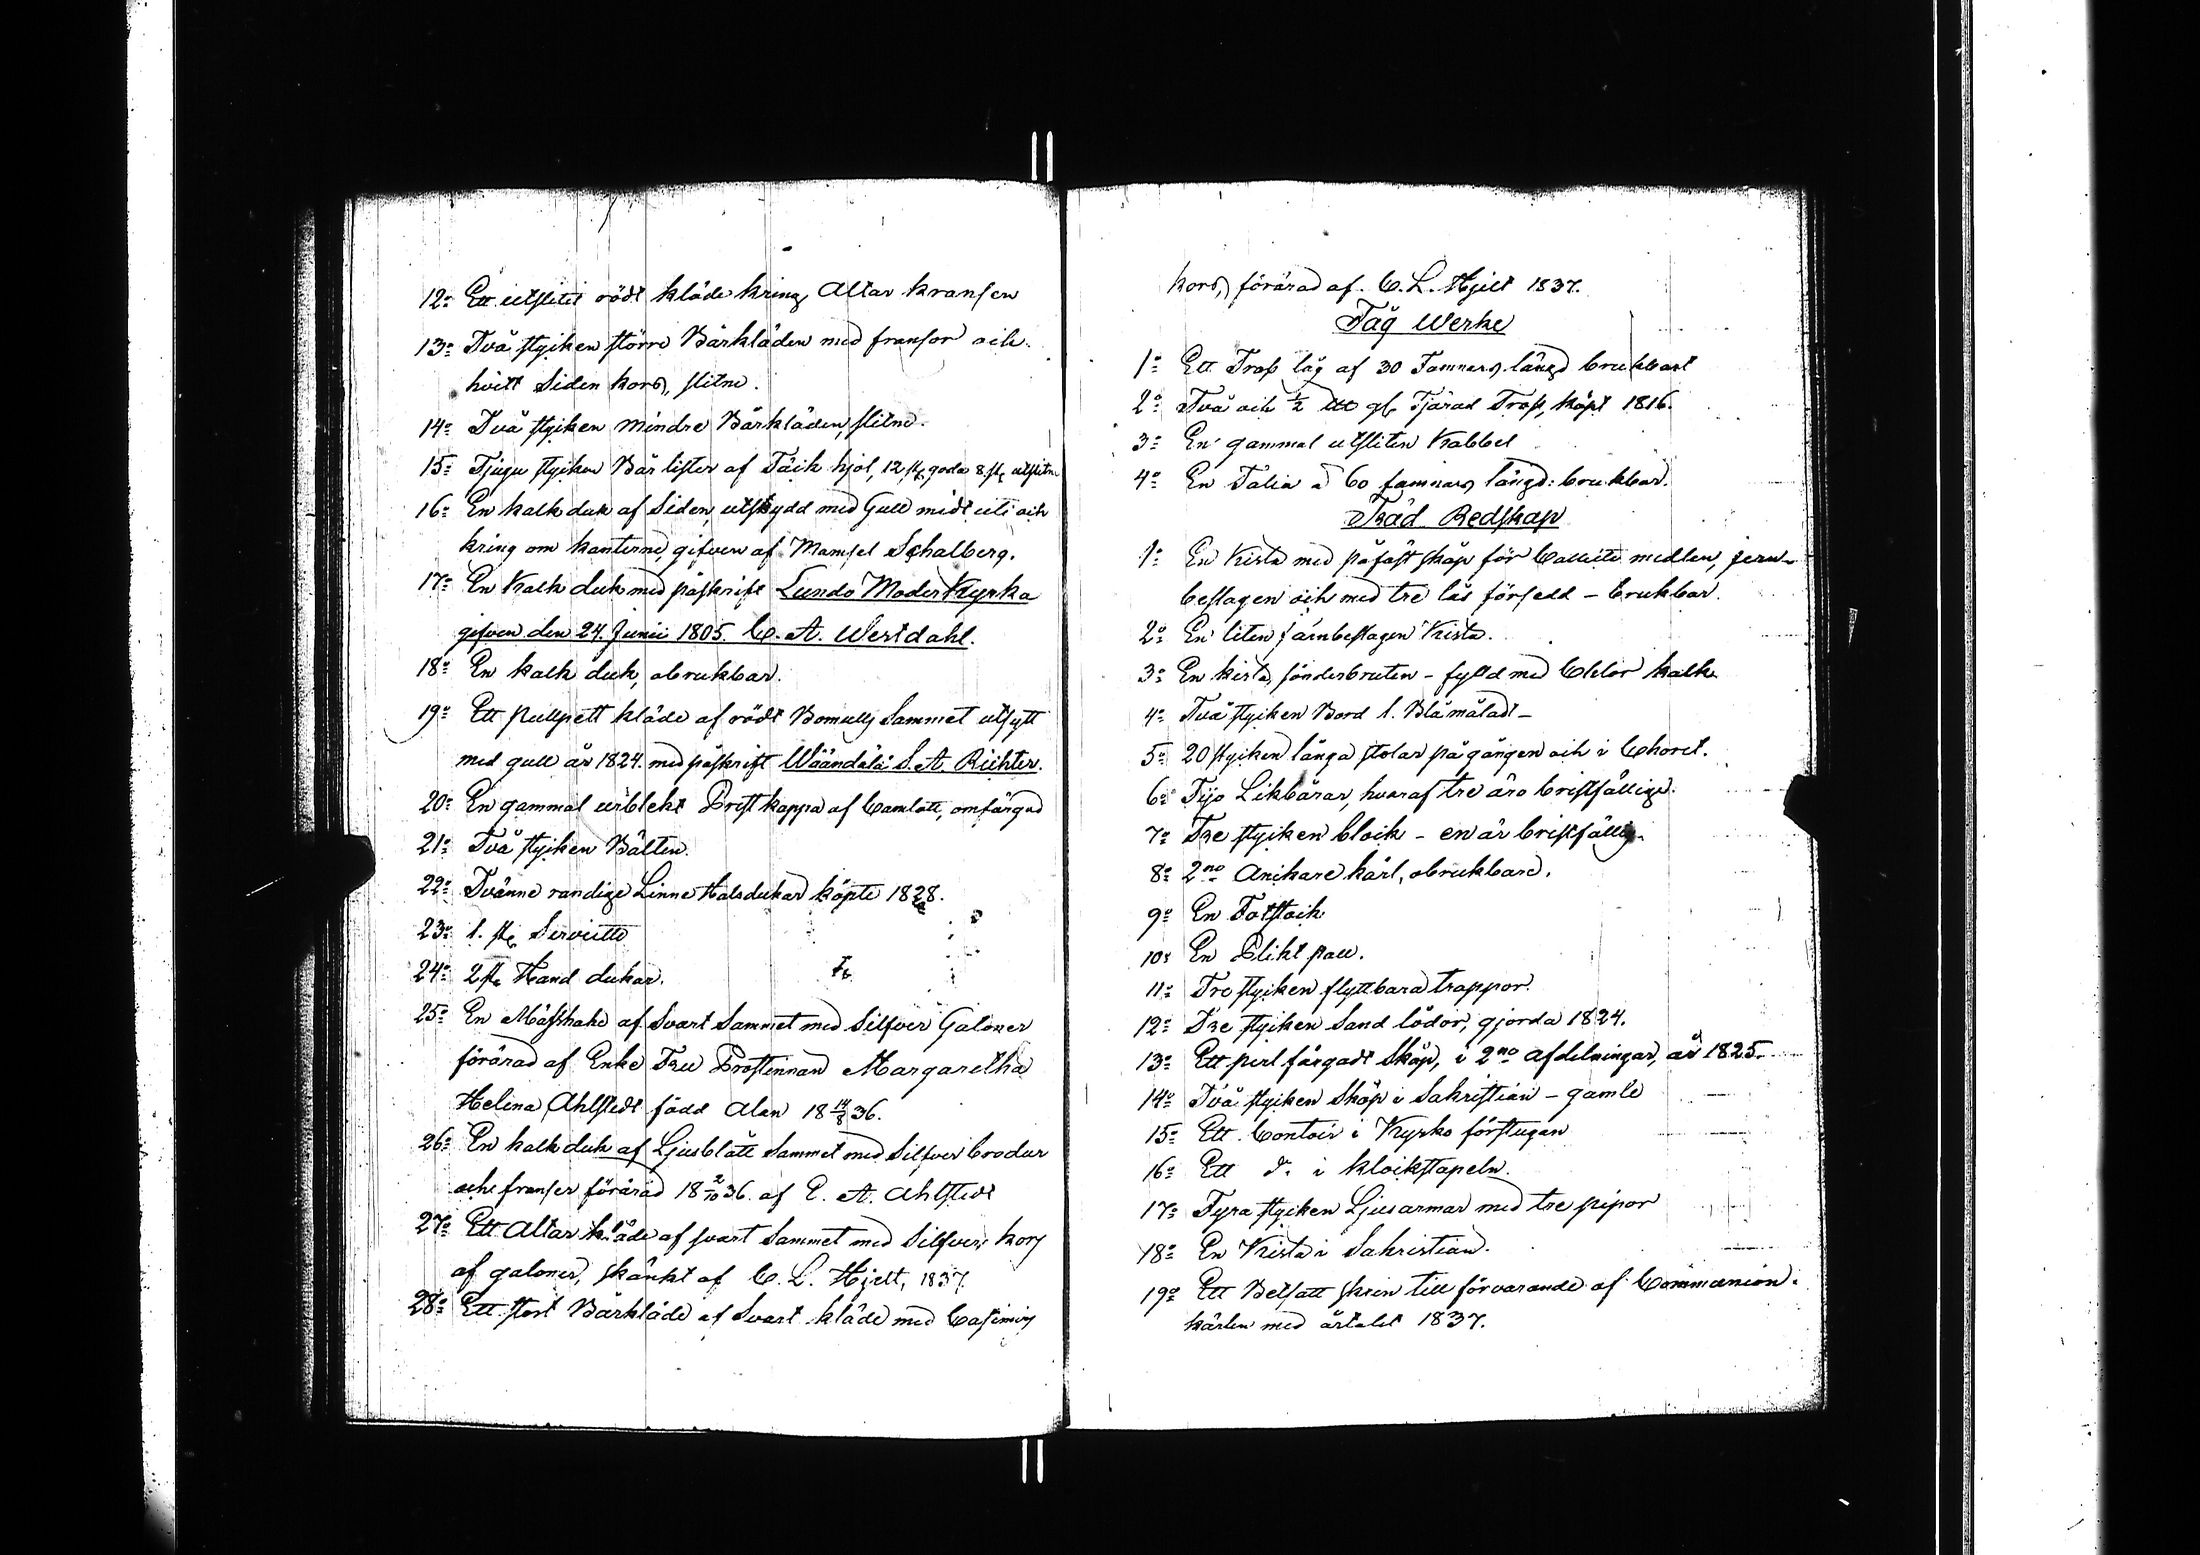 12o Ett utslitit rödt kläde kring Altar kransen
13o Två stycken större Bårkläden med fransor och
hvitt Siden kors, slitne.
14o Två stycken mindre Bårkläden, slitne.
15o Tjugu stycken Bår lister af Täck hjol, 12 st. goda 8 st. utslitne
16o En kalk duk af Siden, utskydd med Gull midt uti och
kring om kanterne, gifven af Mamsel Schalberg.
17o En Kalk duk med påskrift Lundo Moder Kyrka
gifven den 24 Junii 1805. C. A. Westdahl.
18o En kalk duk, obrukbar.
19o Ett pullpett kläde af rödt Bomulls Sammet utsytt
med gull år 1824. med påskrift Wäändälä S. A. Richter.
20o En gammal urblekt Prest kappa af Camlott, omfärgad
21o Två stycken Bälten.
22o Tvänne randige Linne Halsdukar köpte 1828.
23o 1. st. Serviette
24o 2 st. Hand dukar.
25o En Mässhake af Svart Sammet med Silfver Galoner
förärad af Enke Fru Prostinnan Margaretha
Helena Ahlstedt född Alan 18 14/8 36.
26o En kalk duk af Ljusblått Sammet med Silfver brodur
och franser förärad 18 2/10 36. af E. A. Ahlstedt
27o Ett Altar kläde af svart Sammet med Silfver kors
af galoner, skänkt af C. L. Hjelt, 1837.
28o Ett stort Bårkläde af Svart kläde med Casimirs
kors, förärad af C. L. Hjelt 1837.
Tåg Werke
1o Ett Tross tåg af 30 Famnars längd brukbart
2o Två och 1/2 Tjärad Tross, köpt 1816.
3o En gammal utsliten Kabbel
4o En Talia a 60 famnars längd: brukbar.
Träd Redskap
1o En Kista med påfäst skåp för Collecte medlen, jern-
beslagen och med tre lås försedd - brukbar.
2o En liten järnbeslagen Kista.
3o En kista, sönderbruten - fylld med Chlor kalk.
4o Två stycken Bord 1. Blåmåladt -
5o 20 stycken långa stolar på gången och i Choret.
6o Tijo Likbårar, hvaraf tre äro bristfällige.
7o Tre stycken block - en är bristfällig.
8o 2no Ankare kärl, obrukbare.
9o En Fotstock
10o En Plikt pall.
11o Tre stycken flyttbara trappor.
12o Tre stycken Sand lådor, gjorda 1824.
13o Ett perl färgadt Skåp, i 2no afdelningar, år 1825.
14o Två stycken Skåp i Sakristian - gamle
15o Ett Contoir i Kyrko förstugan
16o Ett do i klockstapeln.
17o Fyra stycken Ljusarmar med tre pipor
18o En Kista i Sakristian.
19o Ett Betsatt skrin till förvarande af Communion.
kärlen med årtalet 1837.